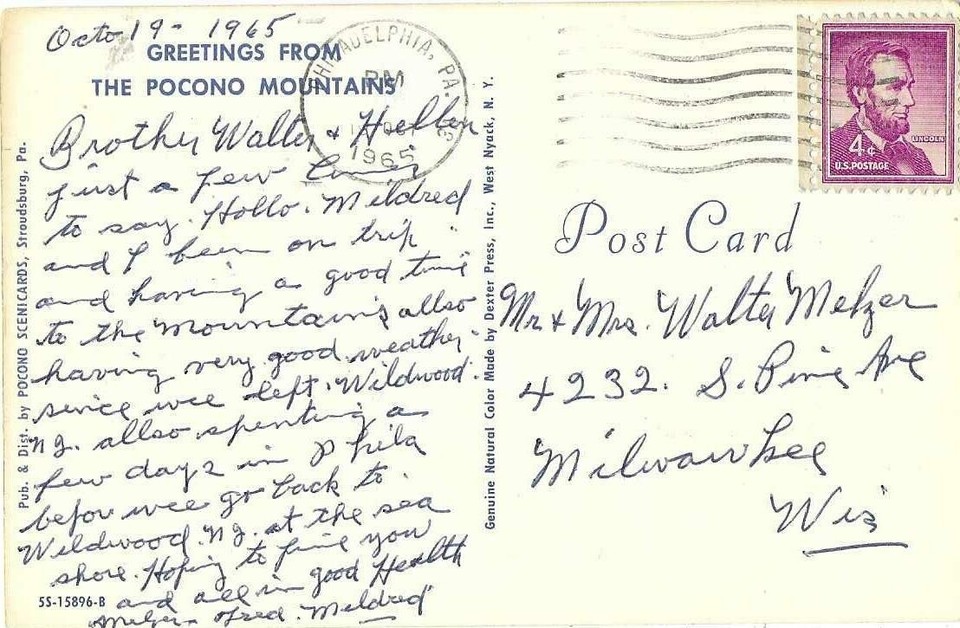 Octo 19- 1965
GREETINGS FROM
THE POCONO MOUNTAINS
Brother Walter & Hellen
just a few lines
to say. Hollo. Mildred
and I been on trip
and having a good time
to the Mountains allso
having very good weather
since wee left. Wildwood.
N.J. allso spenting a
few days in Phila
befor wee go back to
Wildwood. N.J. at the sea
shore. Hoping to fine you
and all in good Health
Fred. Mildred
5S-15896-B
Pub. & Dist. by POCONO SCENICARDS, Stroudsburg, Pa.
Genuine Natural Color Made by Dexter Press, Inc., West Nyack, N. Y.
PHILADELPHIA, PA.
PM
1965
LINCOLN
4¢
U.S. POSTAGE
Post Card
Mr & Mrs. Walter Melzer
4232. S. Pine Ave
Milwawkee
Wis